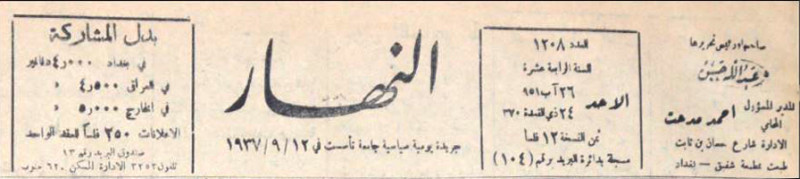 صاحبها ورئيس تحريرها
عبدالله حسن
المدير المسؤول
المحامي
احمد مدحت
الادارة شارع حسان بن ثابت
طبعت بمطبعة شفيق – بغداد
العدد ١٢٠٨
السنة الرابعة عشرة
الاحد
٢٦ آب ٩٥١
٢٤ ذي القعدة ٣٧٠
ثمن النسخة ١٢ فلساً
مسجلة بدائرة البريد برقم (١٠٤)
النهار
جريدة يومية سياسية جامعة تأسست في ١٩٣٧/٩/١٢
بدل المشاركة
في بغداد ٤٫٠٠٠ دنانير
في العراق ٤٫٥٠٠ »
في الخارج ٥٫٠٠٠ »
الاعلانات ٢٥٠ فلساً للعقد الواحد
صندوق البريد رقم ١٣
تلفون ٣٢٥٢ الادارة السكن ٦٢٠ جنوب